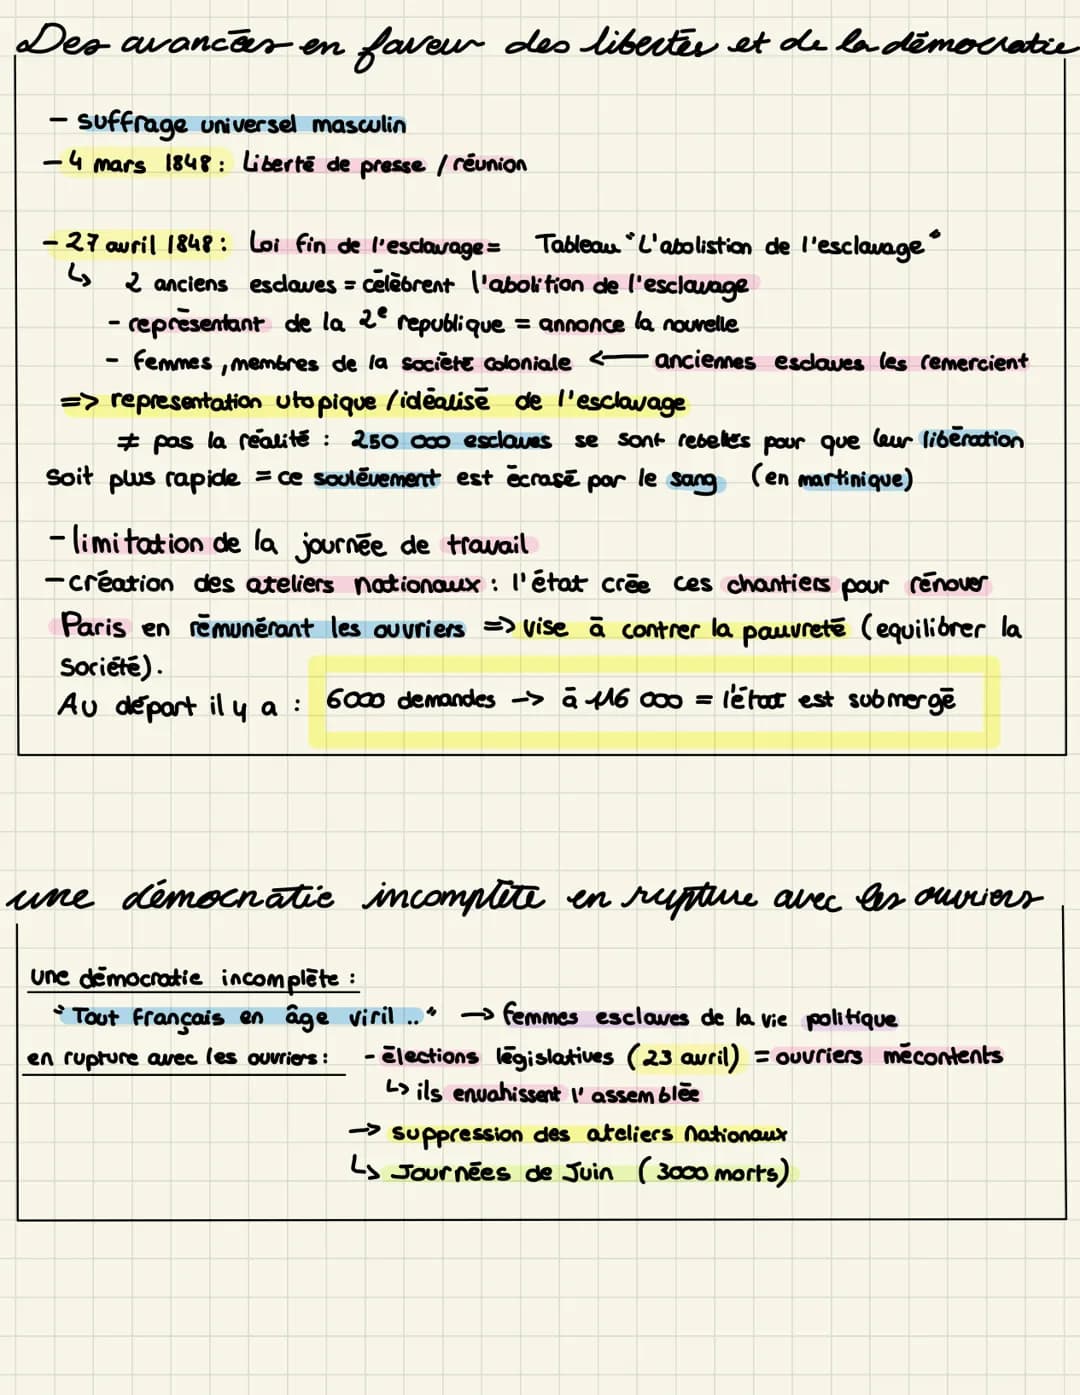 Des avancées en faveur des libertés et de la démocratie
- suffrage universel masculin
- 4 mars 1848 : Liberté de presse / réunion
- 27 avril 1848 : Loi fin de l'esclavage = Tableau "L'abolistion de l'esclavage"
↳ 2 anciens esclaves = célèbrent l'abolition de l'esclavage
- représentant de la 2e republique = annonce la nouvelle
- femmes, membres de la société coloniale ← anciennes esclaves les remercient
=> representation utopique / idéalisé de l'esclavage
≠ pas la réalité : 250 000 esclaves se sont rebellés pour que leur libération
soit plus rapide = ce soulèvement est écrasé par le sang (en martinique)
- limitation de la journée de travail
- création des ateliers nationaux : l'état crée ces chantiers pour rénover
Paris en rémunérant les ouvriers => vise à contrer la pauvreté (equilibrer la
société).
Au départ il y a : 6000 demandes -> à 116 000 = l'état est submergé
une démocratie incomplète en rupture avec les ouvriers
une démocratie incomplète :
"Tout français en âge viril .." → femmes esclaves de la vie politique
en rupture avec les ouvriers : - élections législatives (23 avril) = ouvriers mécontents
↳ ils envahissent l'assemblée
→ suppression des ateliers nationaux
↳ Journées de Juin (3000 morts)